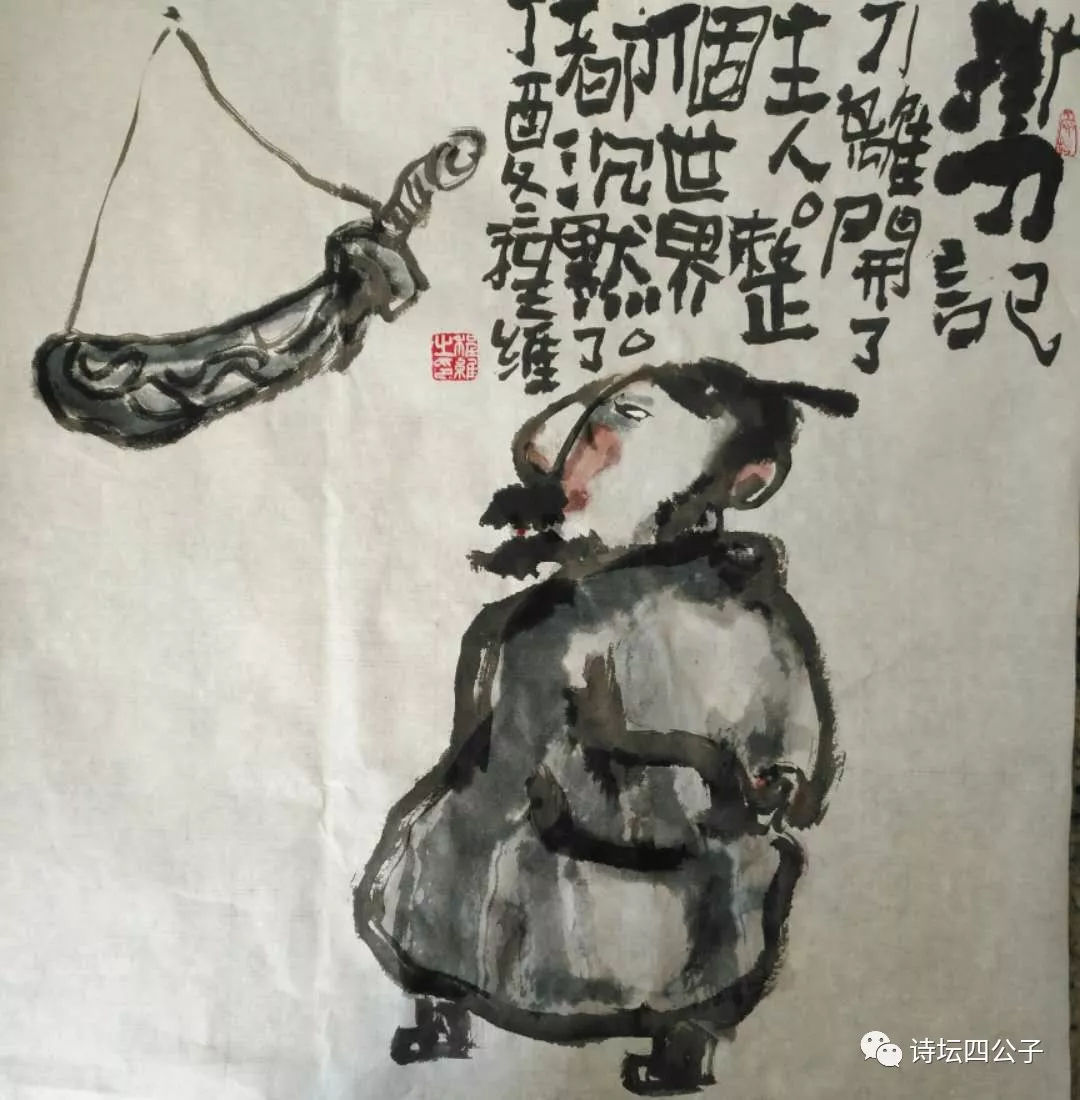 掛刀記
刀離開了
主人。整
個世界
都沉默了。
丁酉冬程維
程維之印
诗坛四公子